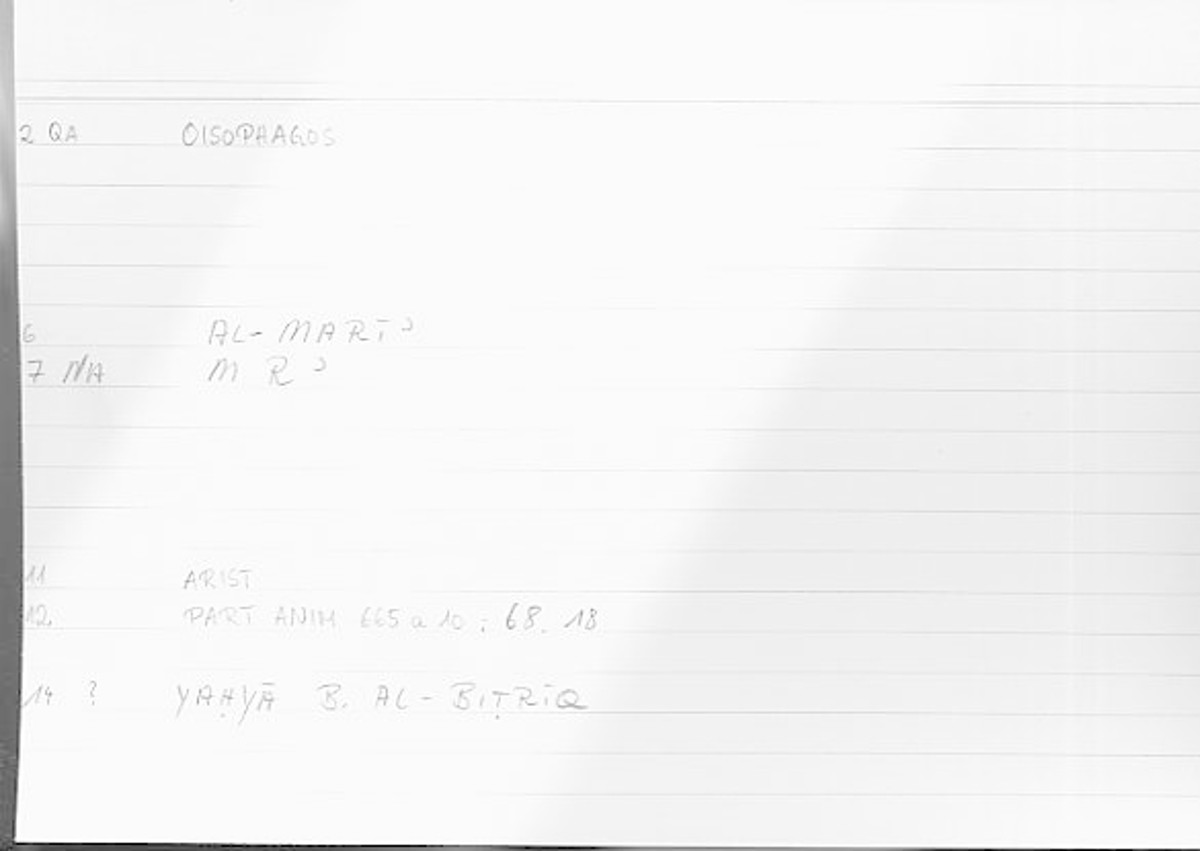 2 QA OISOPHAGOS
6 AL-MARĪʾ
7 NA M R ʾ
11 ARIST
12 PART ANIM 665 a 10 ; 68. 18
14 ? YAḤYĀ B. AL-BIṬRĪQ